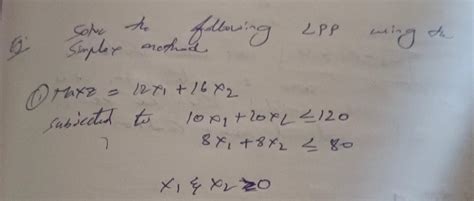 Q: Solve the following LPP using the
Simplex method.
① Max Z = 12x₁ + 16x₂
subjected to 10x₁ + 20x₂ ≤ 120
8x₁ + 8x₂ ≤ 80
x₁ & x₂ ≥ 0